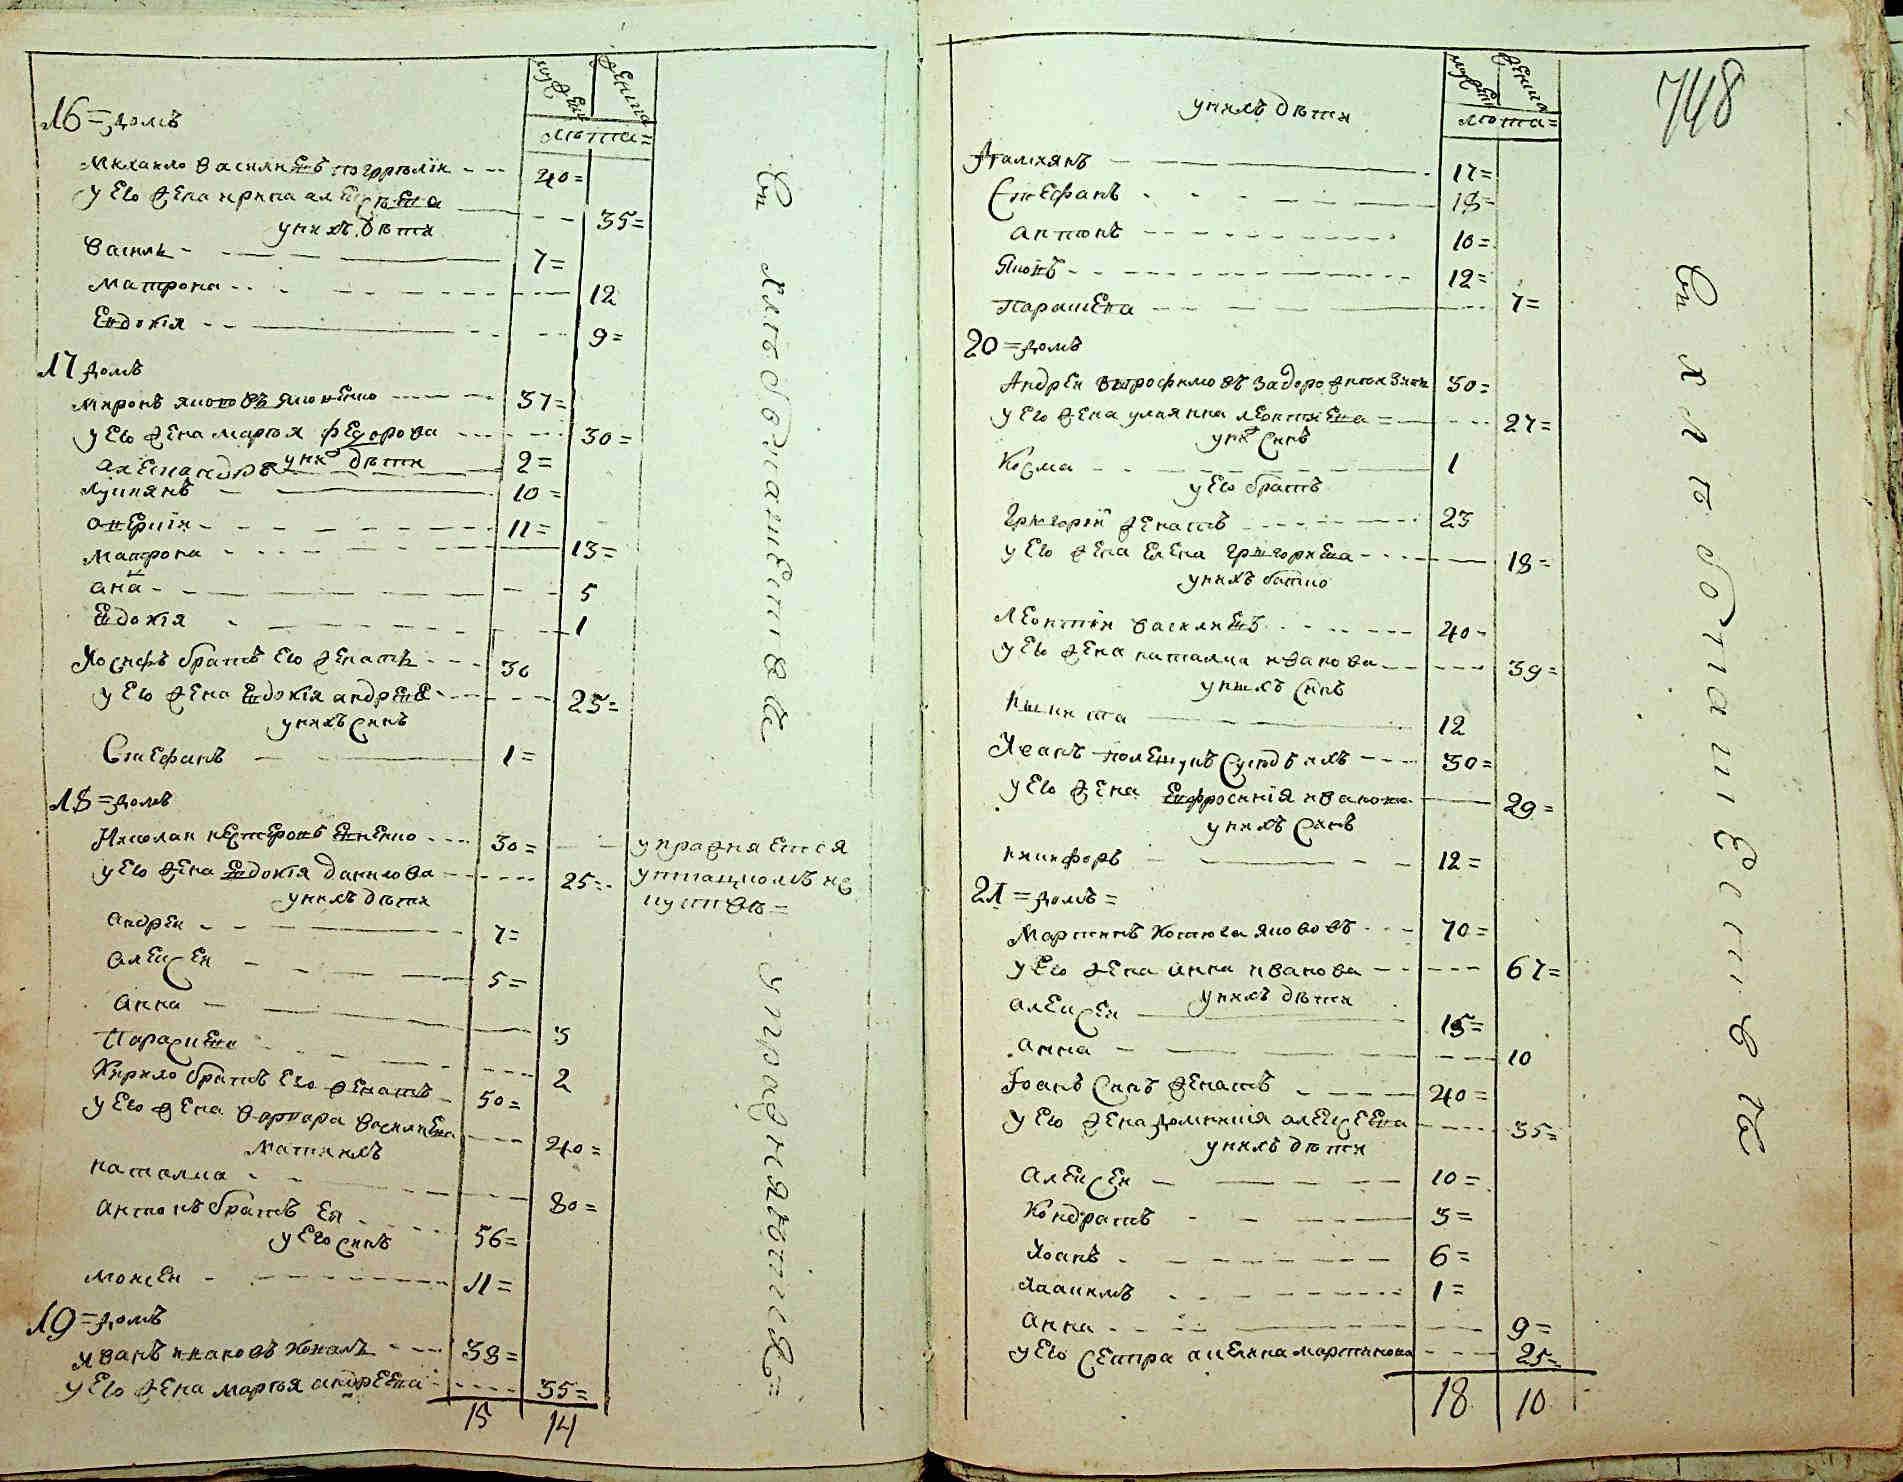 мужеска
женска
лета=
16=домъ
Михаило Василиевъ погорелїи 40=
у его жена ирина алексеева 35=
у нихъ дѣти
Василь 7=
Матрона 12
Евдокїя 9=
17 домъ
Миронъ якововъ яковенко 37=
у его жена марья федорова 30=
у них дѣти
александръ 2=
Лукиянъ 10=
аверкїи 11=
Матрона 13=
ана 5
Евдокїя 1
Иосифъ братъ его женатъ 30
у его жена Евдокїя андреев 25=
у нихъ синъ
Стефанъ 1=
18=домъ
Николаи нестеровъ 30=
у его жена Евдокїя данилова 25=
у нихъ дѣти
андреи 7=
алексеи 5=
анна 3
Параскева 2
Кирило братъ его женатъ 50=
у его жена варвара василиева 40=
мати ихъ
наталиа 80=
антонъ братъ ея 56=
у его синъ
моисеи 11=
19=домъ
иванъ ивановъ 38=
у его жена марья андреева 35=
15 14
упражняется
въ хлебопашестве упражняютися=
748
мужеска
женска
лета=
у нихъ дѣти
Дамиянъ 17=
Стефанъ 18=
антонъ 10=
Яковъ 12=
Парасцева 7=
20=домъ
Андреи 30=
у его жена улиянна леонтиева 27=
у них синъ
Косма 1
у его братъ
Григорїи женатъ 23
у его жена елена григориева 18=
у нихъ батко
Леонтїи василиевъ 40=
у его жена наталиа иванова 39=
у нихъ синъ
Никита 12
Иванъ полещукъ судѣ ихъ 30=
у его жена Евфросинїя иванова 29=
у нихъ синъ
никифоръ 12=
21=домъ=
Мартинъ яковов 70=
у его жена анна иванова 67=
у нихъ дѣти
алексеи 15=
анна 10
Іоанъ синъ женатъ 40=
у его жена домникия алексеева 35=
у нихъ дѣти
алексеи 10=
Кондратъ 3=
Иоанъ 6=
Иаакимъ 1=
анна 9=
у его сестра акелина мартинова 25=
18 10
въ хлебопашествѣ